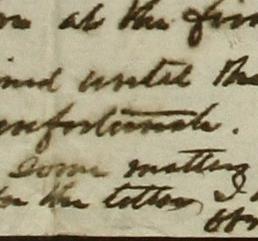 at the
until the
unfortunate.
Some matters
for the letter I